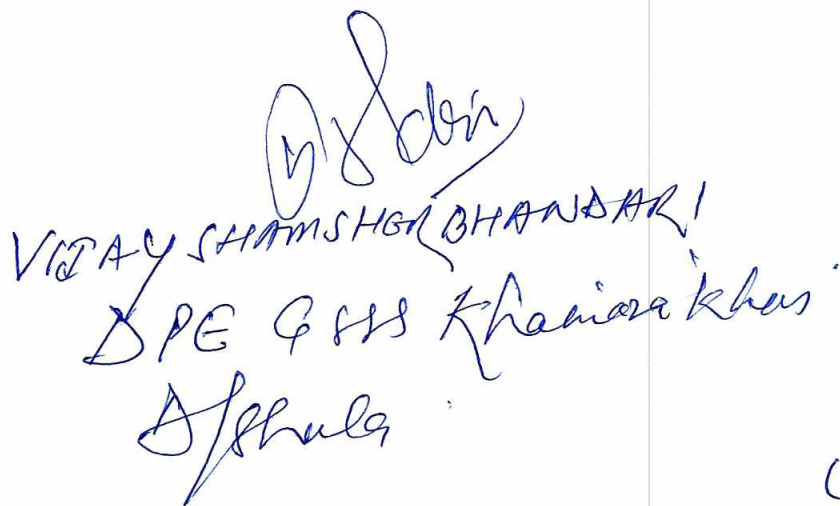 VIJAY SHAMSHER BHANDARI
DPE GSSS Khaniara Khas
D/Shala